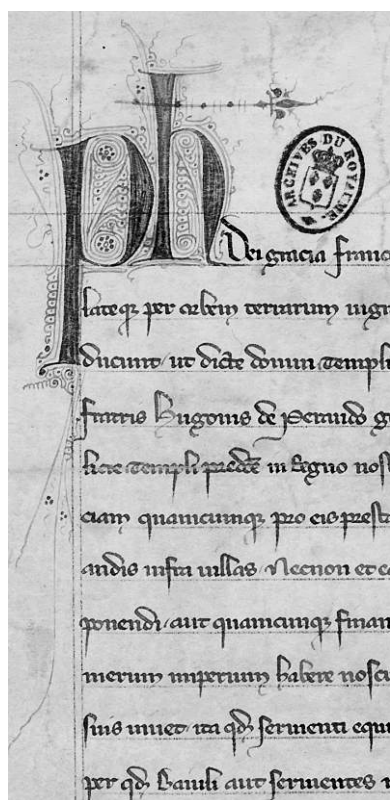 ARCHIVES DU ROYAUME
Ph
Dei gracia franc
lateq; per orbem terrarum uig
ducunt ut dicte domui Templi
fratris Hugonis de Peraudo g
licie Templi predce in Regno nos
ciam quamcumq; pro eis prest
andis infra uillas Necnon et e
ponendi aut quamcumq; finan
merum imperium habere nosc
suis uiuet ita qd seruienti equi
per qd Bailli aut seruientes